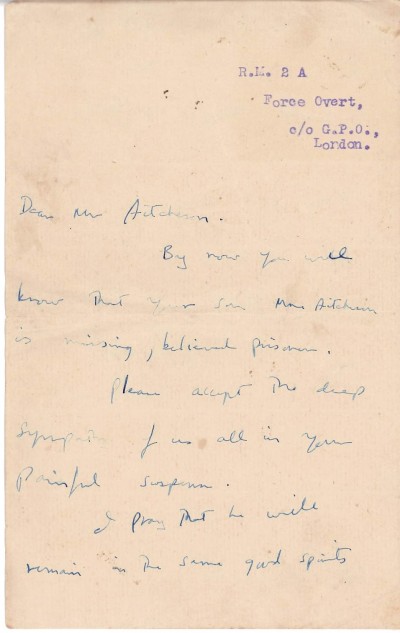 R.M. 2 A
Force Overt,
c/o G.P.O.,
London.
Dear Mr Aitchison.
By now you will
know that your son Mne Aitchison
is missing, believed prisoner.
Please accept the deep
sympathy of us all in your
painful suspense.
I pray that he will
remain in the same good spirits